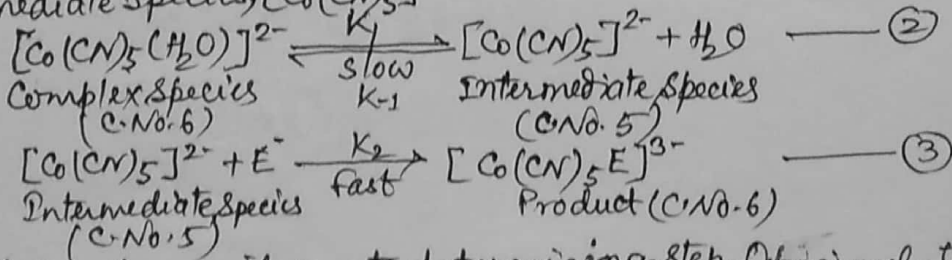 [Co(CN)5(H2O)]2- K1 ⇌ slow K-1 [Co(CN)5]2- + H2O — ②
Complex species Intermediate species
(C.No.6) (C.No.5)
[Co(CN)5]2- + E- K2 → fast [Co(CN)5E]3- — ③
Intermediate species Product (C.No.6)
(C.No.5)